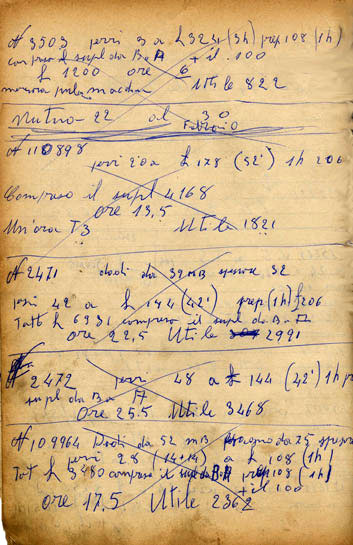 N 3503 pezzi 3 a £ 324 (3h) prep 108 (1h)
compreso il supl da B a A + il 100
£ 1200 ore 6
Utile 822
Mutuo - 22 al 30
Febraio
N 110898
pezzi 20 a £ 178 (52') 1h 206
Compreso il supl 4168
ore 19,5
Un'ora T3 Utile 1821
N 2471 dadi da 39 MB spessore 32
pezzi 42 a £ 144 (42') prep (1h) £ 206
Tott £ 6931 compreso il supl da B a A
ore 22,5 Utile 2991
N 2472 pezzi 48 a £ 144 (42') 1h
supl da B a A
ore 25.5 Utile 3468
N 109964 Dadi da 52 MB da 75
pezzi 28 (14+14) a £ 108 (1h)
Tot £ 3480 compreso il supl da B a A prep 108 (1h)
+ il 100
ore 17,5 Utile 2362